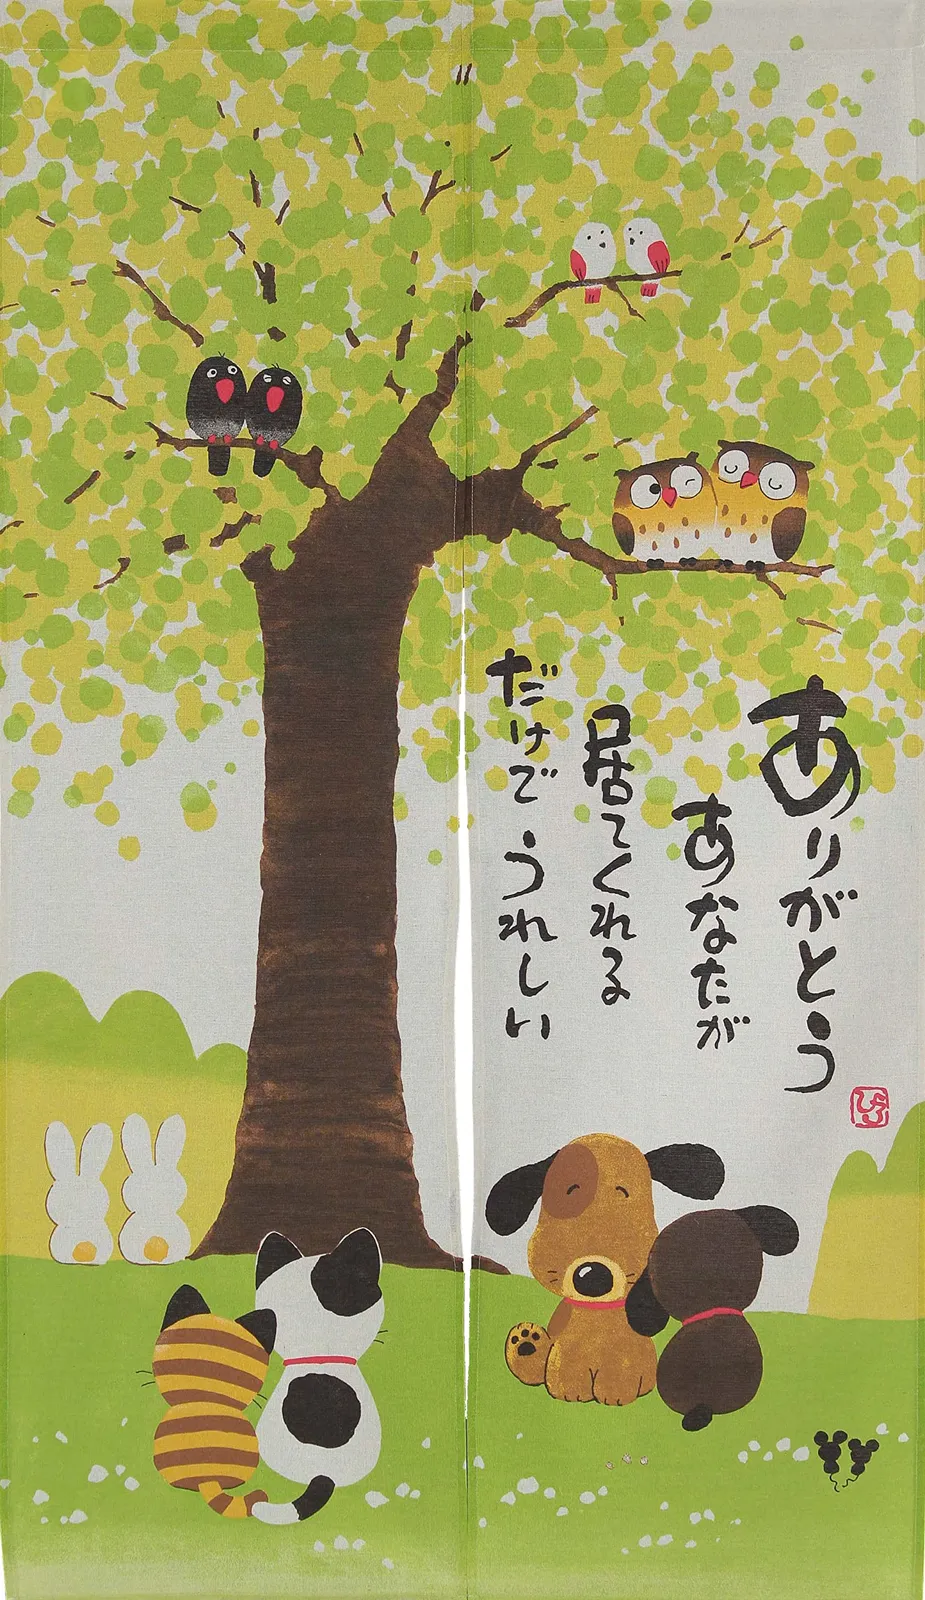 ありがとう
あなたが
居てくれる
だけでうれしい